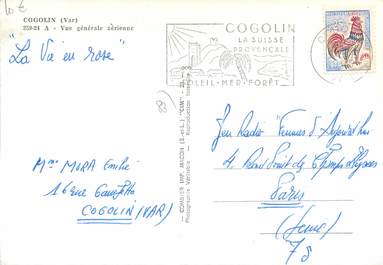 10 €
COGOLIN (Var)
259-24 A - Vue générale aérienne
"La Vie en rose"
(83)
Mme MORA Emilie
16 rue Gambetta
COGOLIN (VAR)
COGOLIN
LA SUISSE
PROVENÇALE
SOLEIL-MER-FORÊT
Jeu Radio "Femmes d'Aujourd'hui
4 Rond Point des Champs Elysées
Paris
(Seine)
78
COMBIER IMP. MACON (S.-et-L.) "CIM"
Photographie Véritable - Reproduction interdite